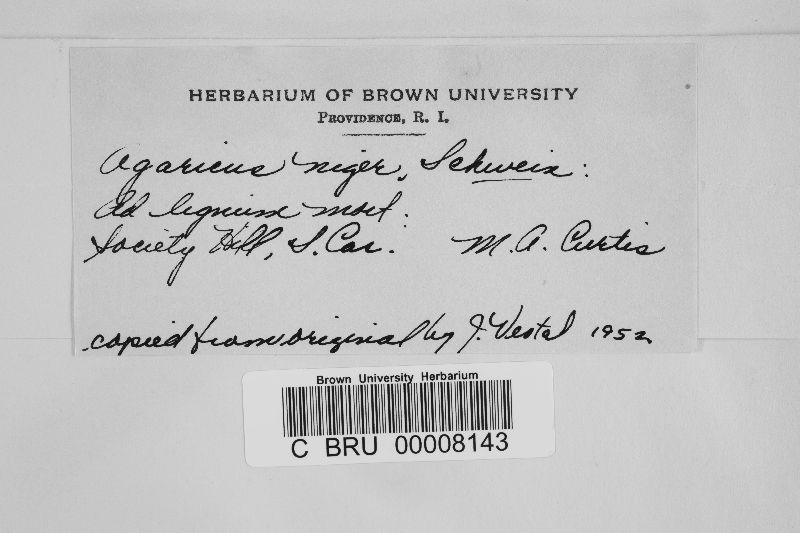 HERBARIUM OF BROWN UNIVERSITY
PROVIDENCE, R. I.
Agaricus niger, Schwein:
Ad lignum mort.
Society Hill, S. Car. M. A. Curtis
copied from original by J. Vestal 1952
Brown University Herbarium
C BRU 00008143